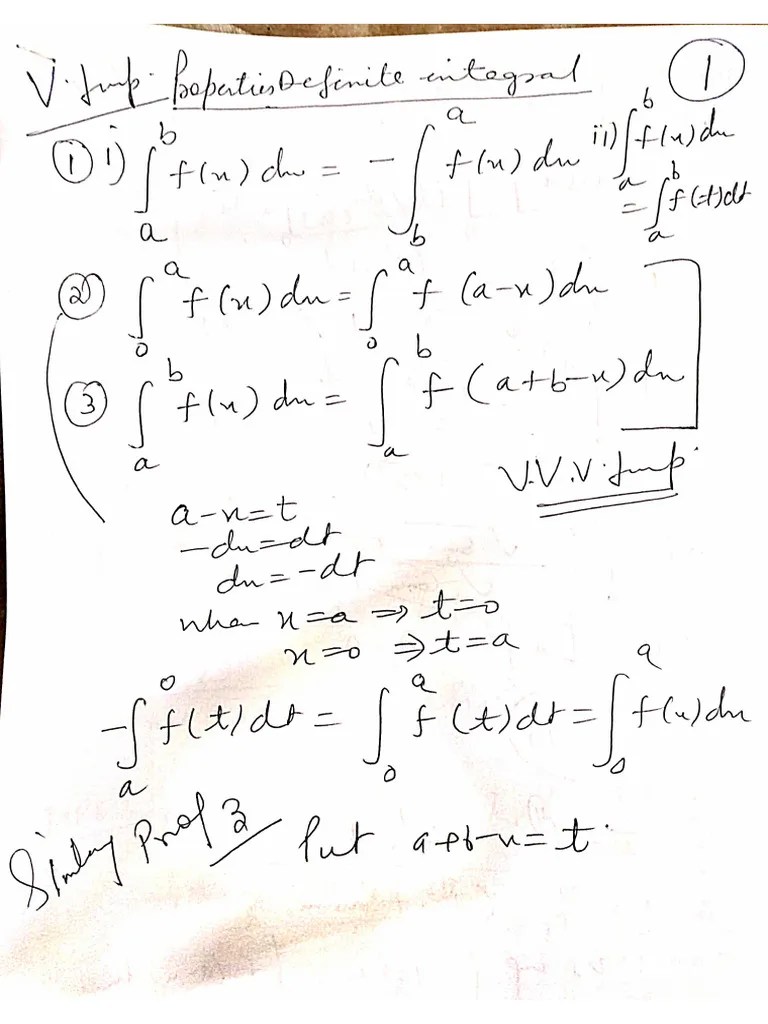 V. Imp. Properties Definite integral ①
① i) ∫_a^b f(x) dx = - ∫_b^a f(x) dx ii) ∫_a^b f(x) dx
= ∫_a^b f(t) dt
② ∫_0^a f(x) dx = ∫_0^a f (a-x) dx
③ ∫_a^b f(x) dx = ∫_a^b f (a+b-x) dx
V.V.V. Imp.
a-x=t
-dx=dt
dx=-dt
when x=a ⇒ t=0
x=0 ⇒ t=a
-∫_a^0 f(t) dt = ∫_0^a f (t) dt = ∫_0^a f(x) dx
Proof 3 Put a+b-x=t.